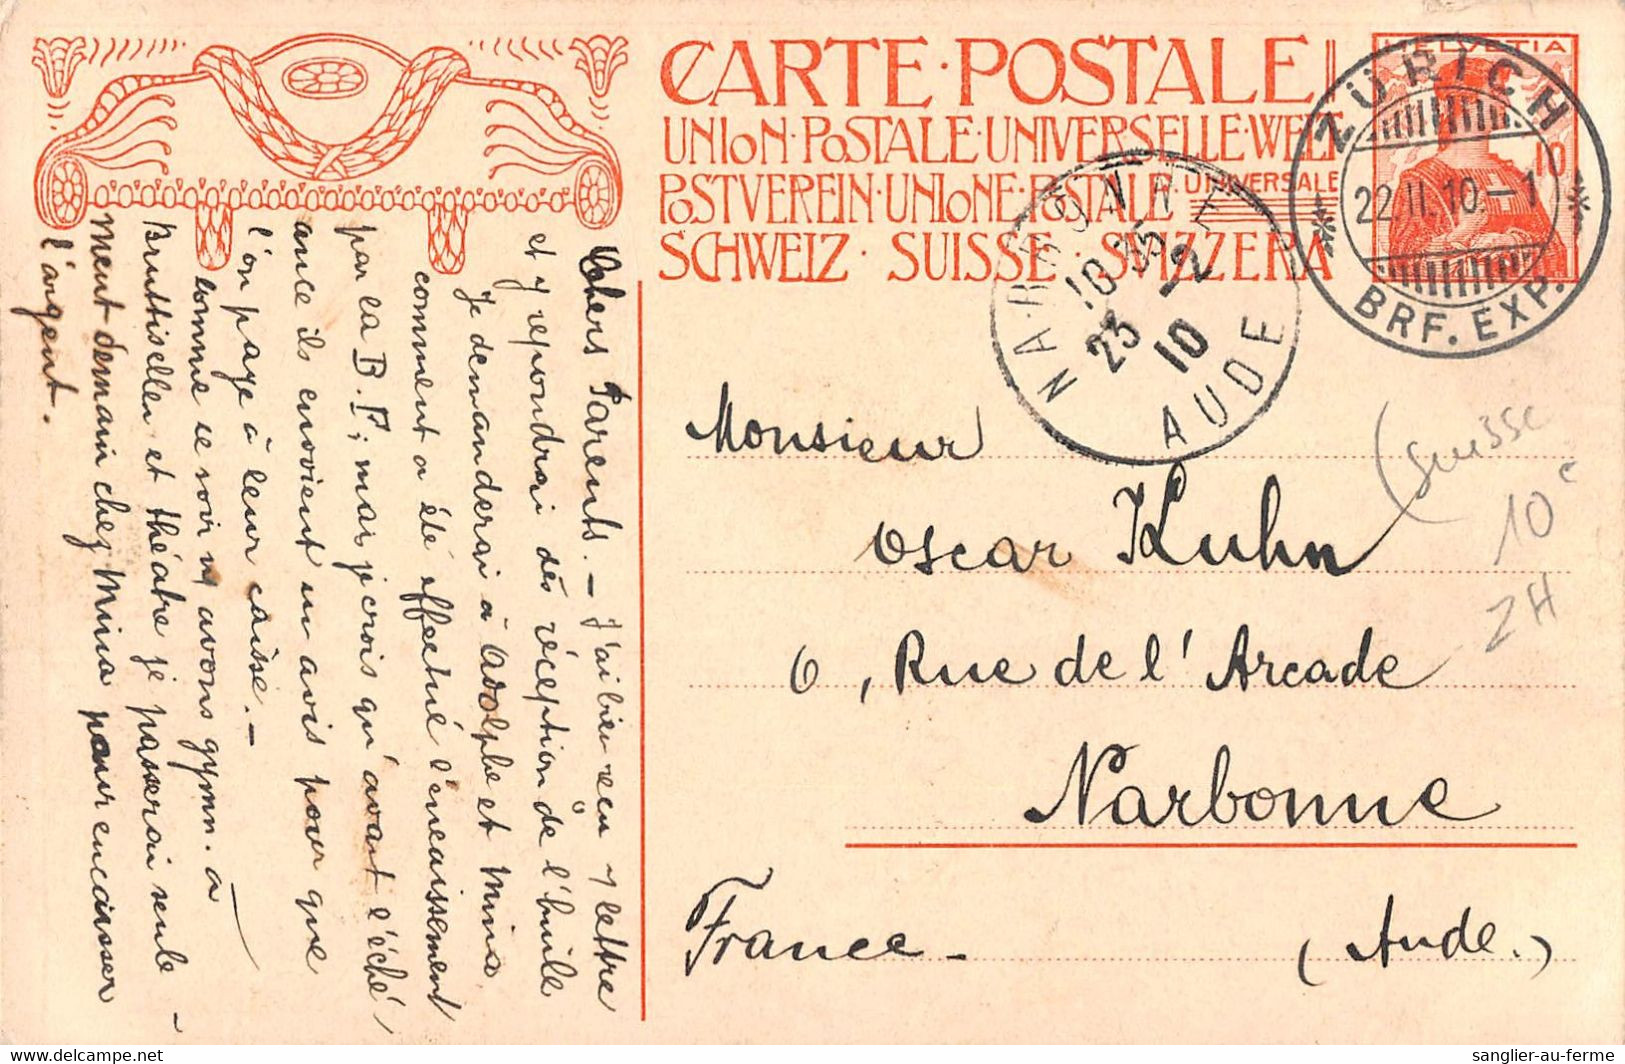 CARTE·POSTALE
UNION·POSTALE·UNIVERSELLE·WELT
POSTVEREIN·UNIONE·POSTALE·UNIVERSALE
SCHWEIZ·SUISSE·SVIZZERA
HELVETIA
10
ZÜRICH
22.II.10.–1
BRF. EXP.
NARBONNE
10 35
23 –2
10
AUDE
Monsieur
Oscar Kuhn
6, Rue de l'Arcade
Narbonne
France — (Aude.)
(Suisse
10 c
ZH
Chers Parents. — J'ai bien reçu v/ lettre
et y repondrai dès réception de l'huile
Je demanderai à Adolphe et Mina
comment a été effectué l'encaissement
par la B.F; mais je crois qu'avant l'éché
ance ils envoient un avis pour que
l'on paye à leur caisse. —
comme ce soir n/ avons gymn. à
Bruttisellen et théatre je passerai seule –
ment demain chez Mina pour encaisser
l'argent.
www.delcampe.net
sanglier-au-ferme